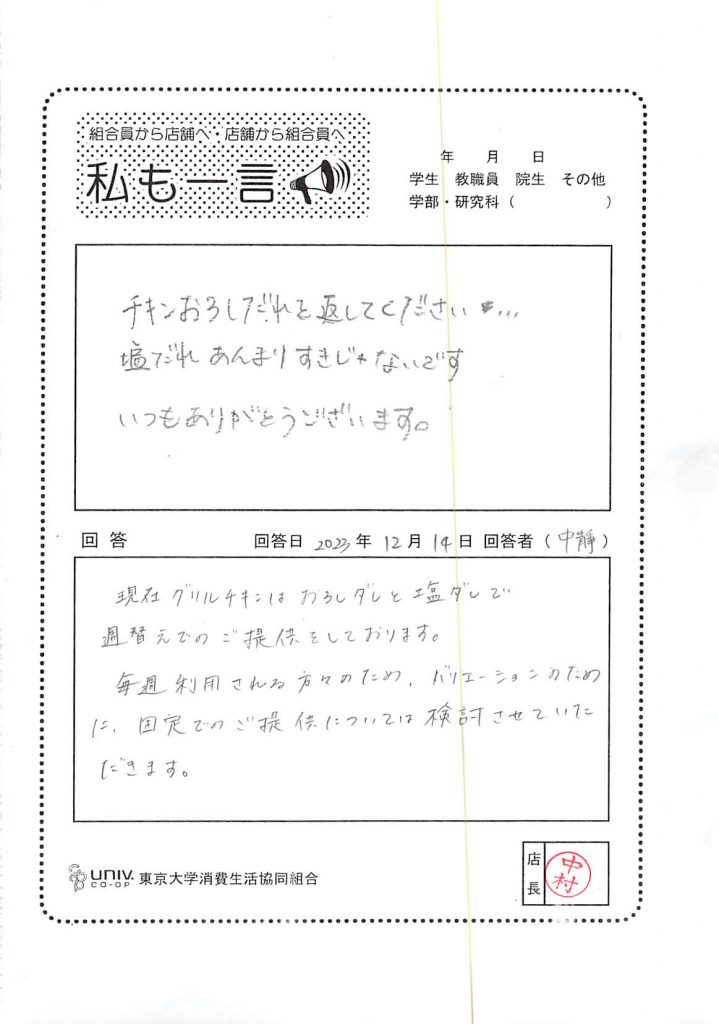 組合員から店舗へ・店舗から組合員へ
私も一言
年 月 日
学生 教職員 院生 その他
学部・研究科（ ）
チキンおろしだれを返してください…
塩だれあんまりすきじゃないです
いつもありがとうございます。
回答 回答日 2023年 12月 14日 回答者（中静）
現在グリルチキンはおろしダレと塩ダレで
週替えでのご提供をしております。
毎週利用される方々のため、バリエーションのため
に、固定でのご提供については検討させていた
だきます。
UNIV. CO-OP 東京大学消費生活協同組合
店長 中村